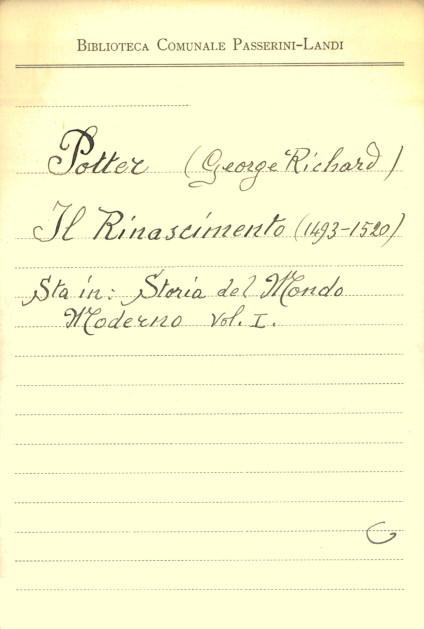 BIBLIOTECA COMUNALE PASSERINI-LANDI
Potter (George Richard)
Il Rinascimento (1493-1520)
Sta in: Storia del Mondo
Moderno Vol. I.